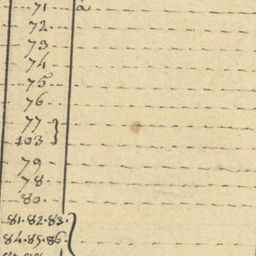 71 a
72
73
74
75
76
77
103
79
78
80
81.82.83.
84.85.86.